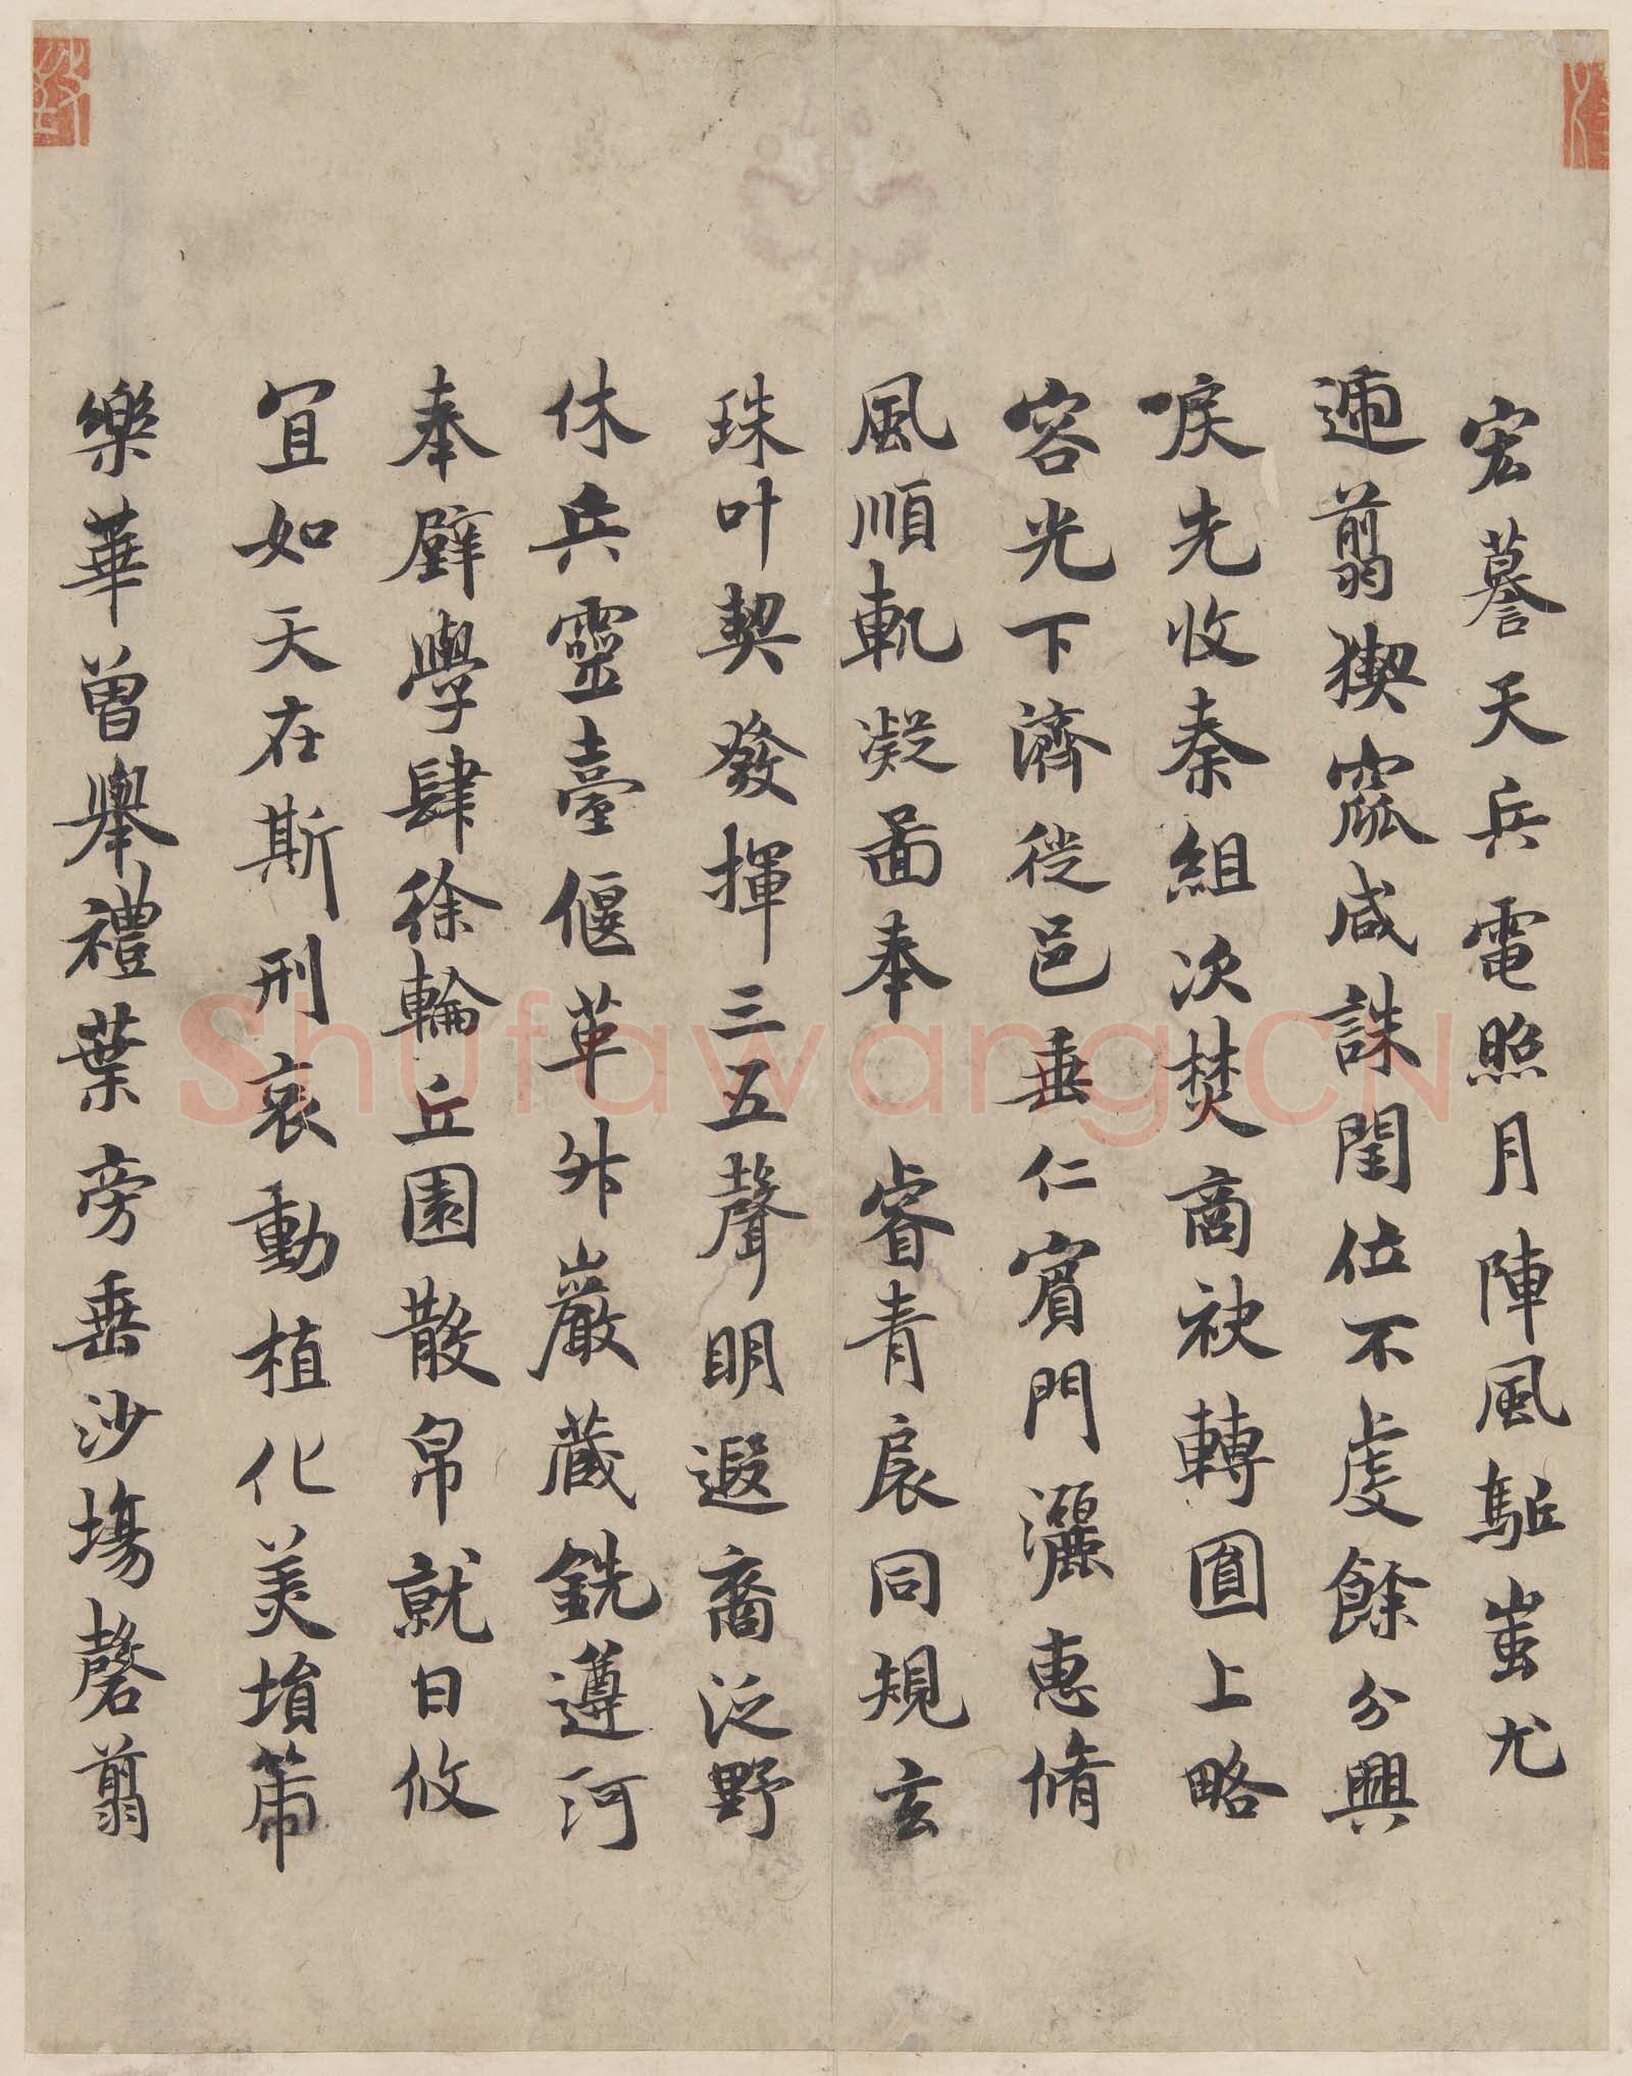 宏謩天兵電照月陣風駈蚩尤
遞翦猰窳咸誅閏位不虔餘分興
戾先收秦組次焚商袂轉圓上略
容光下濟徙邑垂仁賓門灑惠脩
風順軌凝圖奉 睿青扆同規玄
珠叶契發揮三五聲明遐裔泛野
休兵靈臺偃革外巖藏銑遵河
奉璧學肆徐輪丘園散帛就日攸
宜如天在斯刑哀動植化美塤箒
樂華曾舉禮葉旁垂沙場罄翦
ShufawangCN